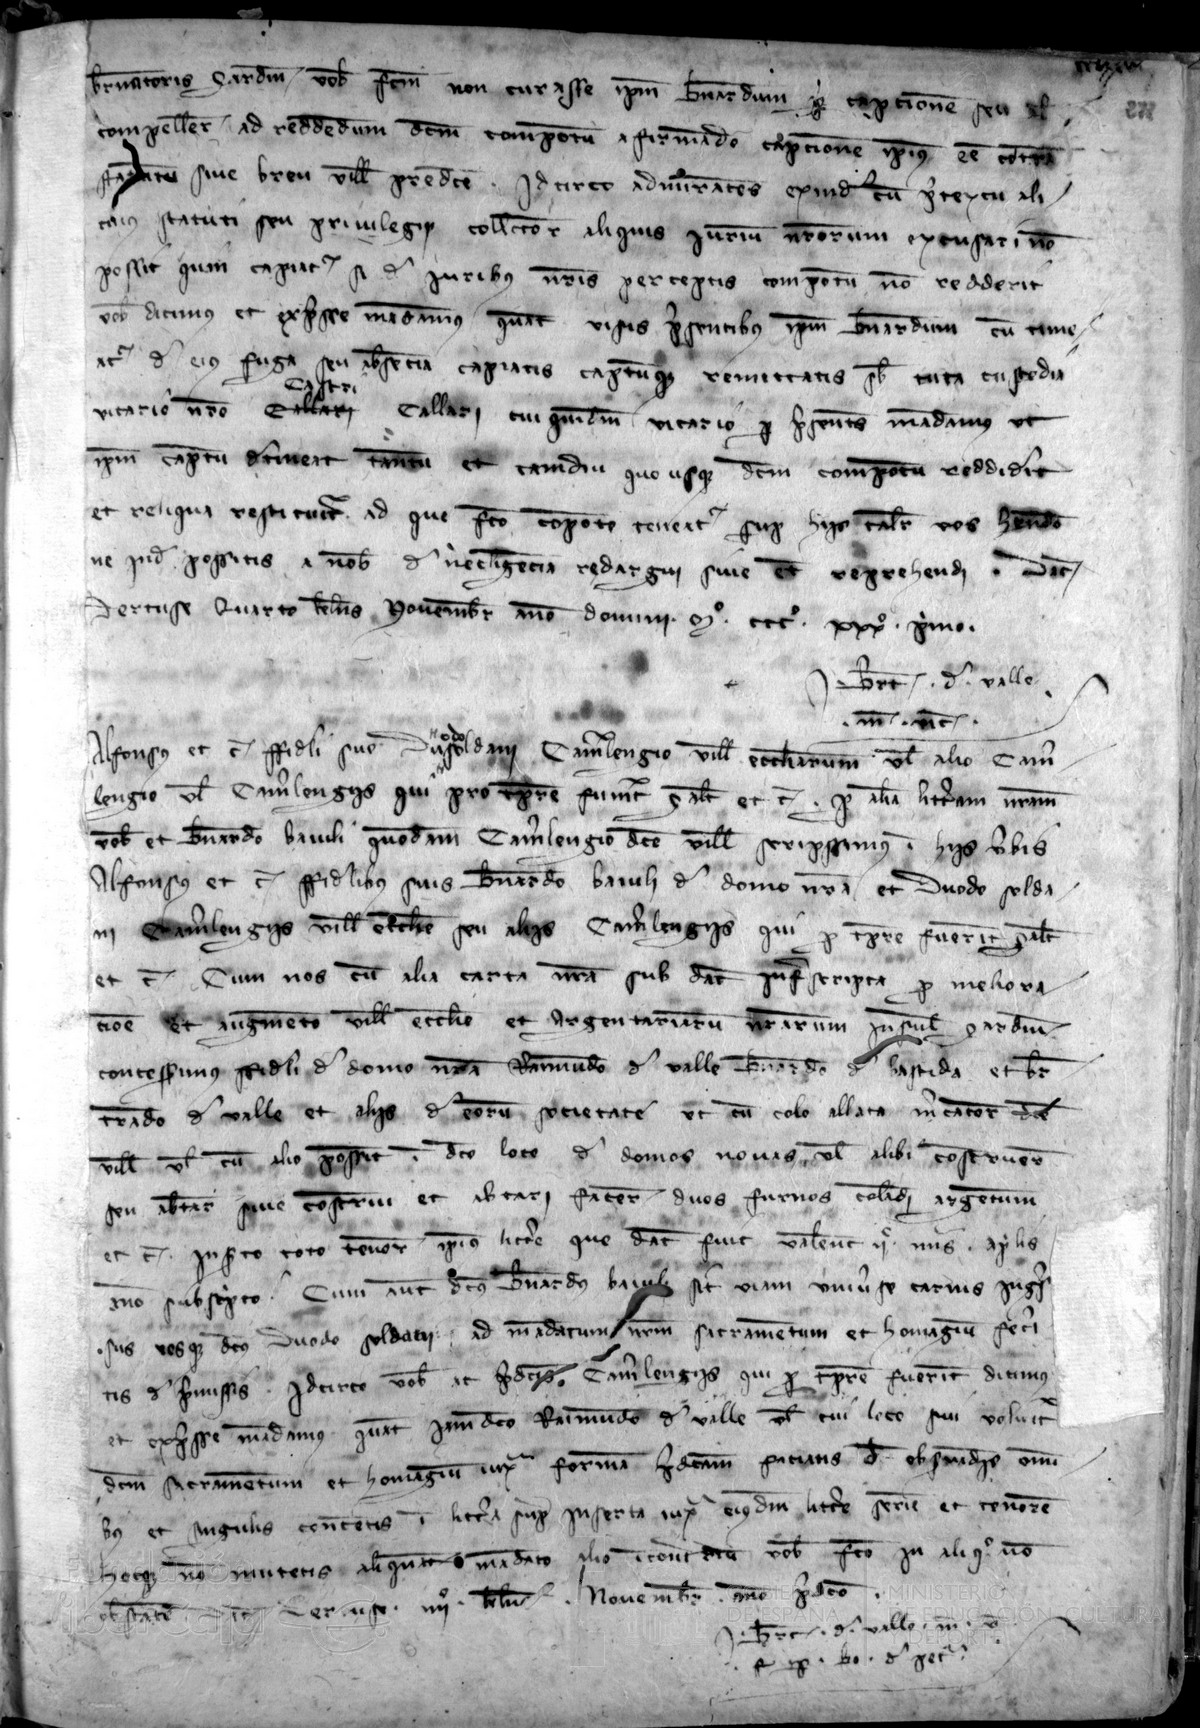 bernatoris Sardin vob fcm non curasse ipm Bnardum in capcione seu
compeller ad reddendum dcm compotu afirmado capcione ipius ee contra
statutu sive breu vill predce. Idcirco admirates exinde cu ptextu ali
cuius statuti seu privilegij collector aliquis iuriu nrorum excusari no
possit quin capiatr si de iuribus nris perceptis compotu no redderit
vob dicimus et expsse madamus quat visis psentibus ipm Bnardum cu time
atr de eius fuga seu absecia capiatis captuque remittatis sb tuta custodia
vicario nro Castri Callari cui quidm vicario p psents madamus ut
ipm captu detineat tantu et tamdiu quousque dcm compotu reddidit
et reliqua restituit ad que fto compoto teneatr sup hijs talr vos hendo
ne ind possitis a nob de necligecia redargui sive et reprehendi. Dat
Dertuse Quarto klns Novembr ano domini. mº. cccº. xxxº. pmo.
Brt. de valle
. m . .
Alfonsus et c ffideli suo Duodo soldani Camlengio vill ecclharum vl alio Cam
lengio vl Camlengijs qui pro tpre fuint salt et c. p alia litteram nram
vob et Bnardo baiuli quodam Camlengio dce vill scripssimus i hijs vbis
Alfonsus et c ffidelibus suis Bnardo baiuli de domo nra et Duodo solda
ni Camlengijs vill ecclhe seu alijs Camlengijs qui p tpre fuerit salt
et c. Cum nos cu alia carta nra sub dat infrscripta p meliora
cioe et augmeto vill ecclhe et argentariaru nrarum insul Sardin
concessimus ffideli de domo nra Raimudo de valle Bnardo de bastida et br
trado de valle et alijs de eoru societate ut cu colo allata mcator
vill vl cu alio possit i dco loco de domos novas vl alibi costruer
seu abtar sive costrui et abtari facer duos furnos coladi argetum
et c. Inserto toto tenor ipius littere que dat fuit Valent iiº nus. aplis
ano subscpto. Cum aut dcus Bnardus baiuli sit viam univse carnis ingr
sus vosque dcus Duodo soldani ad madatum nrm sacrametum et homagiu feci
tis de pmissis. Idcirco vob ac pdcis Camlengijs qui p tpre fuerit dicimus
et expsse madamus quat iamdco Raimudo de valle vl cui loco sui voluit
dcm sacrametum et homagiu iux forma pdcam faciatis de obsvadis omi
bus et singulis contetis i littera sup inserta iux eiusdm littere serie et tenore
hocque no mutetis aliquat madato alio vob fto in aliquo no
obstate. Dat Dertuse. iiijº. klns. Novembr. ano pdco.
Brt. de valle. m. r.
f p. bo. de pet